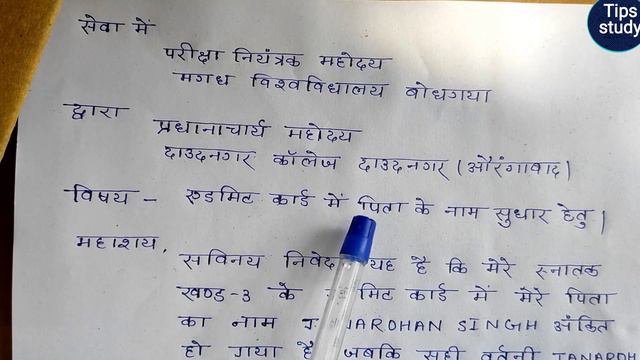 Tips
study
सेवा में
परीक्षा नियंत्रक महोदय
मगध विश्वविद्यालय बोधगया
द्वारा
प्रधानाचार्य महोदय
दाउदनगर कॉलेज दाउदनगर (औरंगाबाद)
विषय - एडमिट कार्ड में पिता के नाम सुधार हेतु।
महाशय,
सविनय निवेदन यह है कि मेरे स्नातक
खण्ड-3 के कार्ड में मेरे पिता
का नाम SINGH अंकित
हो गया है जबकि सही वर्तनी JANARDH